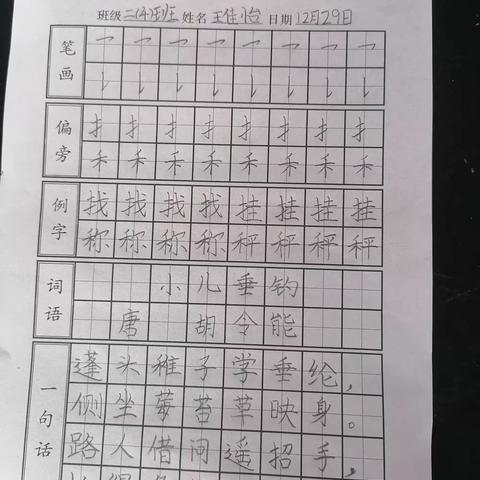 班级 三(4)班 姓名 王佳怡 日期 12月29日
笔画
偏旁
扌扌扌扌扌扌扌扌
禾禾禾禾禾禾禾禾
例字
找找找找挂挂挂挂
称称称称秤秤秤秤
词语
小儿垂钓
唐 胡令能
一句话
蓬头稚子学垂纶,
侧坐莓苔草映身。
路人借问遥招手,